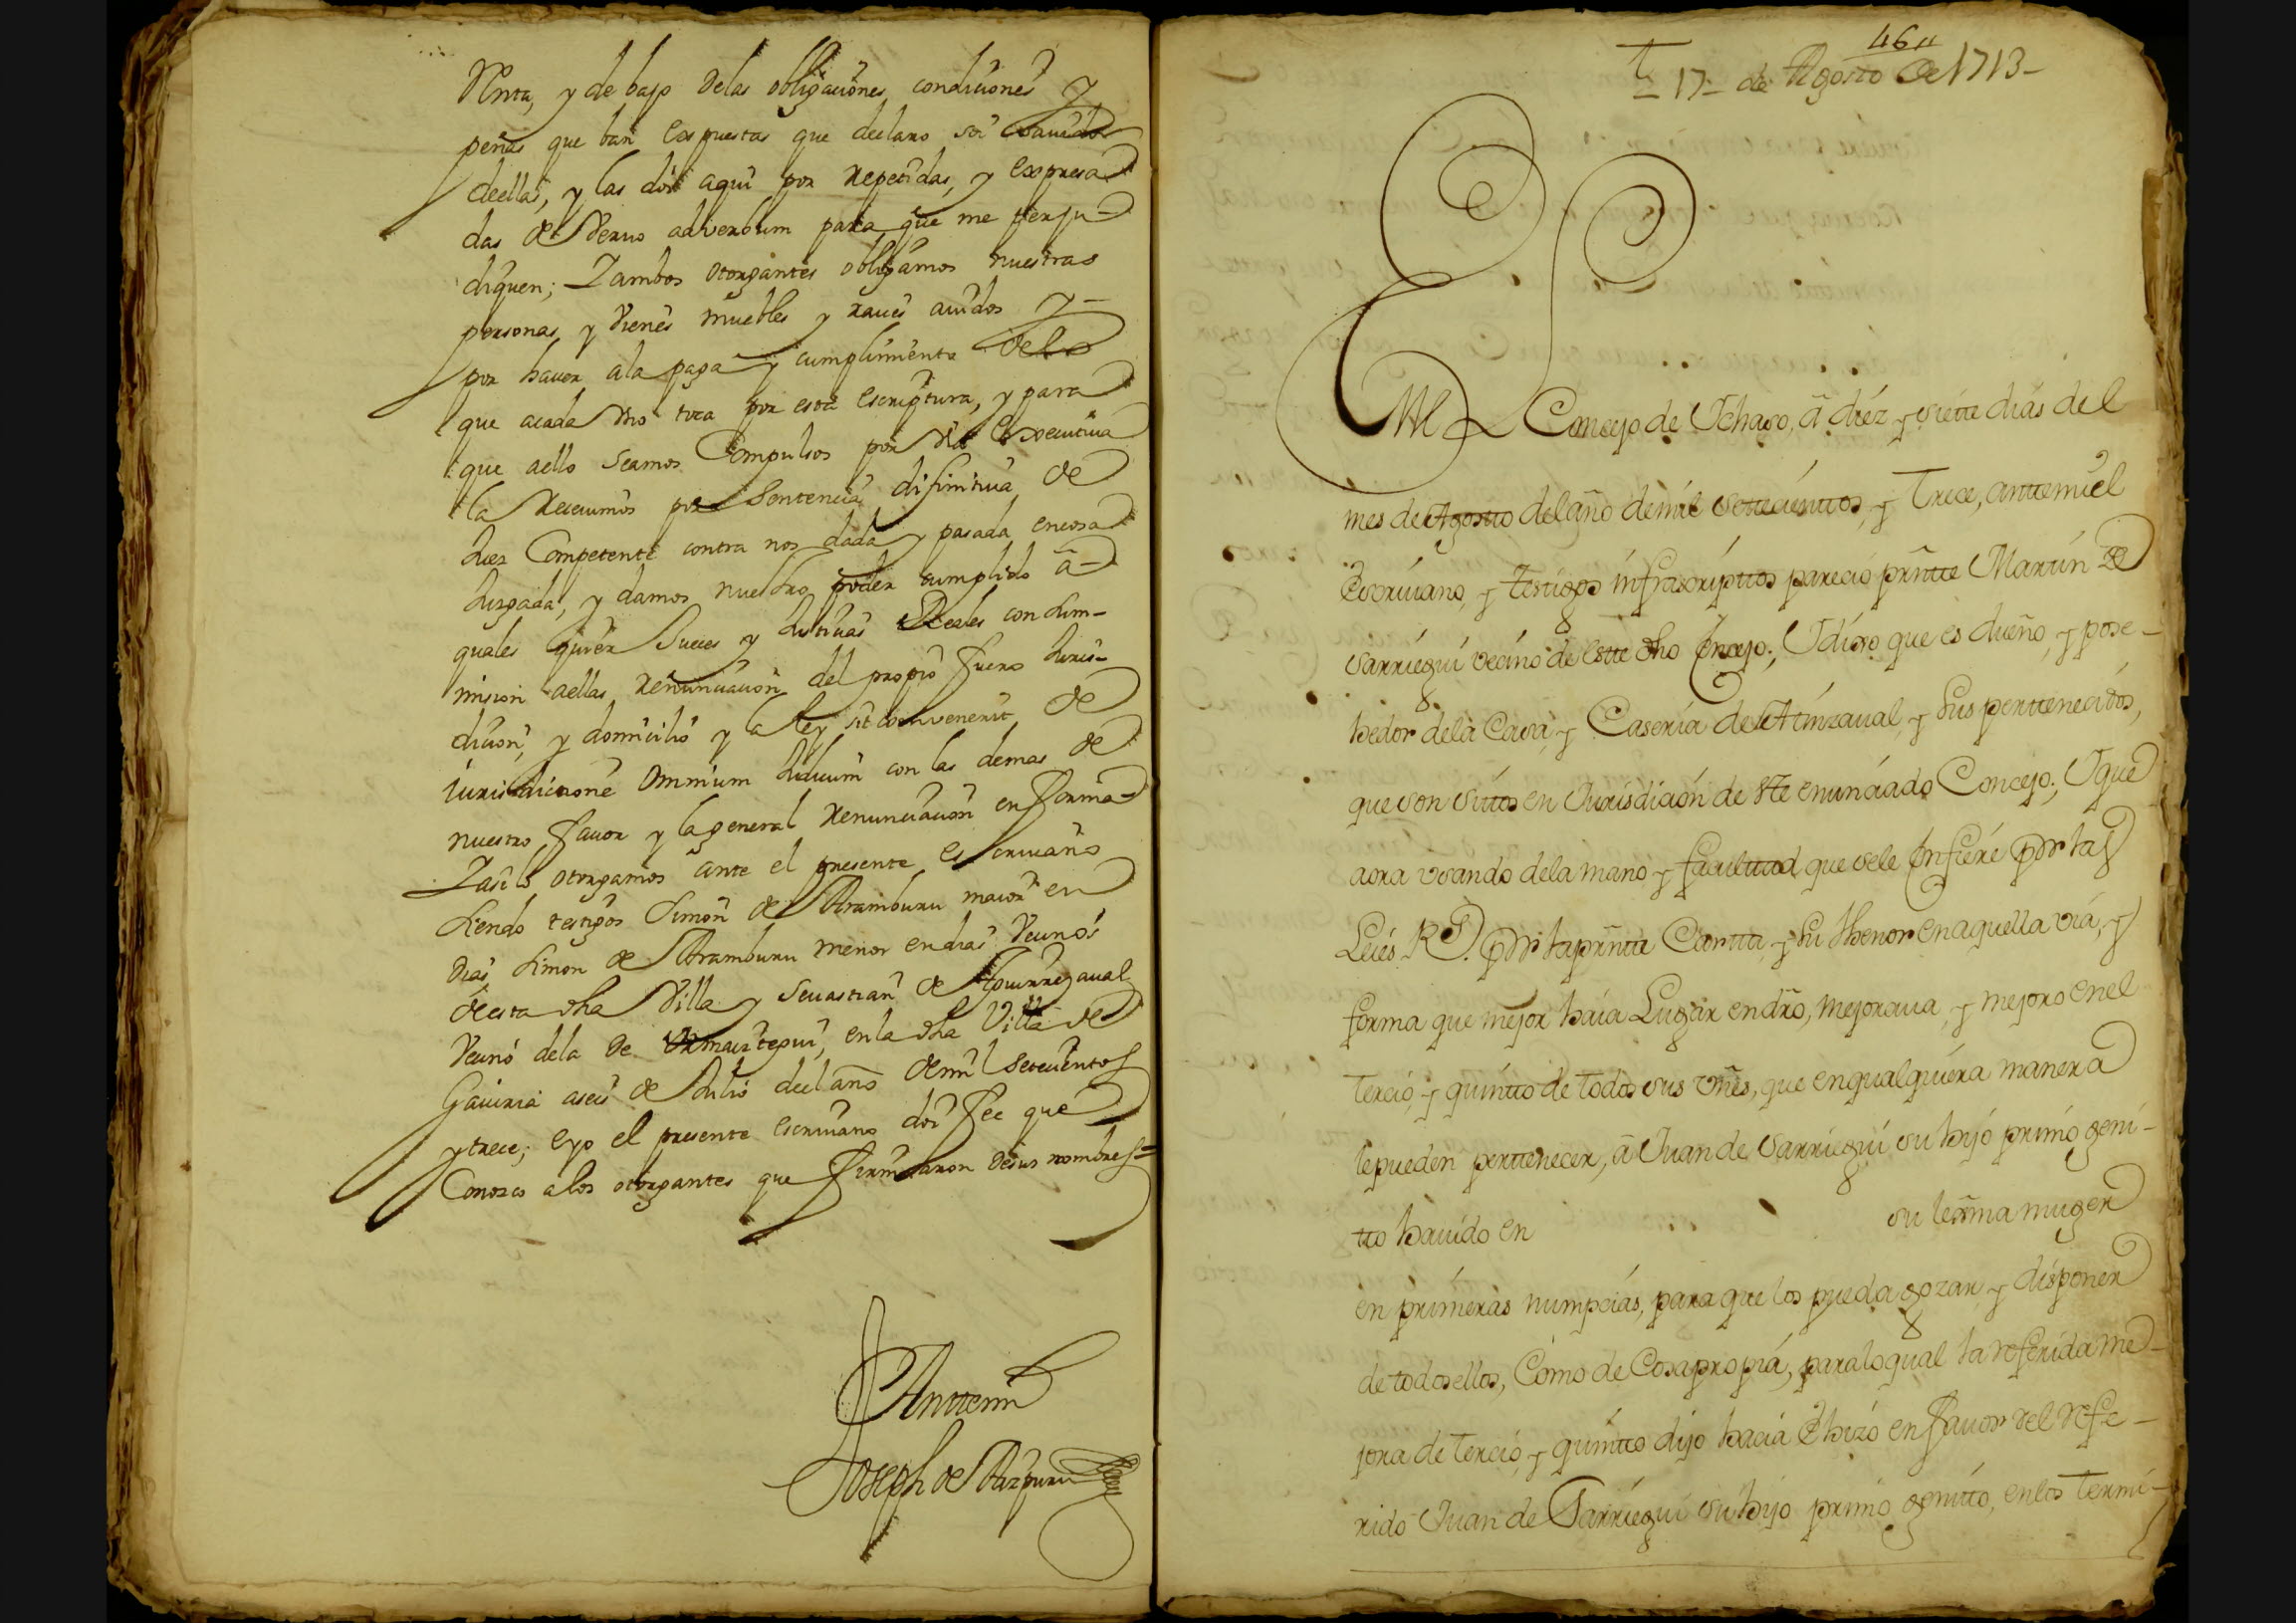 Renta, y debajo delas obligaciones condiciones y
penas que ban Expuestas que declaro soi Savedor
deellas, y las doi aqui por Repetidas, y Expresa-
das de Verbo adverbum para que me perju-
diquen; Yambos otorgantes obligamos nuestras
personas, y vienes muebles y raices auidos y-
por hauer ala paga y cumplimiento delo
que acada Vno toca por esta escriptura, y para
que aello seamos Compulsos por Via Executiua
la Reciuimos por Sentencia difinitiua de
Juez Competente contra nos dada y pasada encosa
Juzgada, y damos nuestro poder cumplido â-
quales quier Jueces y Justicias Reales con sum-
mision aellas, Renunciacion del propio fuero Juris-
dicion, y domicilio y la ley sit convenerit de
iurisdicione omnium Judicum con las demas de
nuestro fauor y la general Renunciacion en forma-
Yasi lo otorgamos ante el presente Escriuano
siendo testigos Simon de Aramburu maior en
dias, Simon de Aramburu menor endias Vecinos
de esta dha Villa y Seuastian de Aguirrezaual
Vecino dela de Ormaiztegui, en la dha Villa de
Gauiria aseis de Julio deel año demil setecientos
ytrece; eyo el presente escriuano doi fee que
Conozco alos otorgantes que firmaron desus nombres=
Anttemi
Joseph de Aizpuru
46"
tº 17- de Agosto de 1713-
Enel Concejo de Ychaso, â diéz y siette dias del
mes de Agostto del año demil settecienttos, y Trece, anttemi el
Escriuano, y testigos infrascripttos pareció prntte Martin de
Sarriegui vecino de estte dho Concejo; Y dixo que es dueño, y pose-
hedor dela Casa, y Caseria de Atinzaual, y sus perttenecidos,
que son sittos en Jurisdición de este enunciado Concejo; Y que
aora vsando dela mano y facultad que sele Confiére por las
Leiés Rs. por la prntte Cartta, y su thenor en aquella via, y
forma que mejor haia Lugar endro, mejoraua, y mejoro enel
Tercio, y quintto de todos sus vnes, que enqualquiera manera
lepueden perttenecer, â Juan de Sarriegui su hijo primo geni-
tto hauido en su lexma muger
en primeras numpcias, para que los pueda gozar, y disponer
de todos ellos, Como de Cosa propiá, paraloqual la referida me-
jora de tercio, y quintto dijo hacia É hizo en fauor del refe-
rido Juan de Sarriegui su hijo primo genitto, enlos Termi-